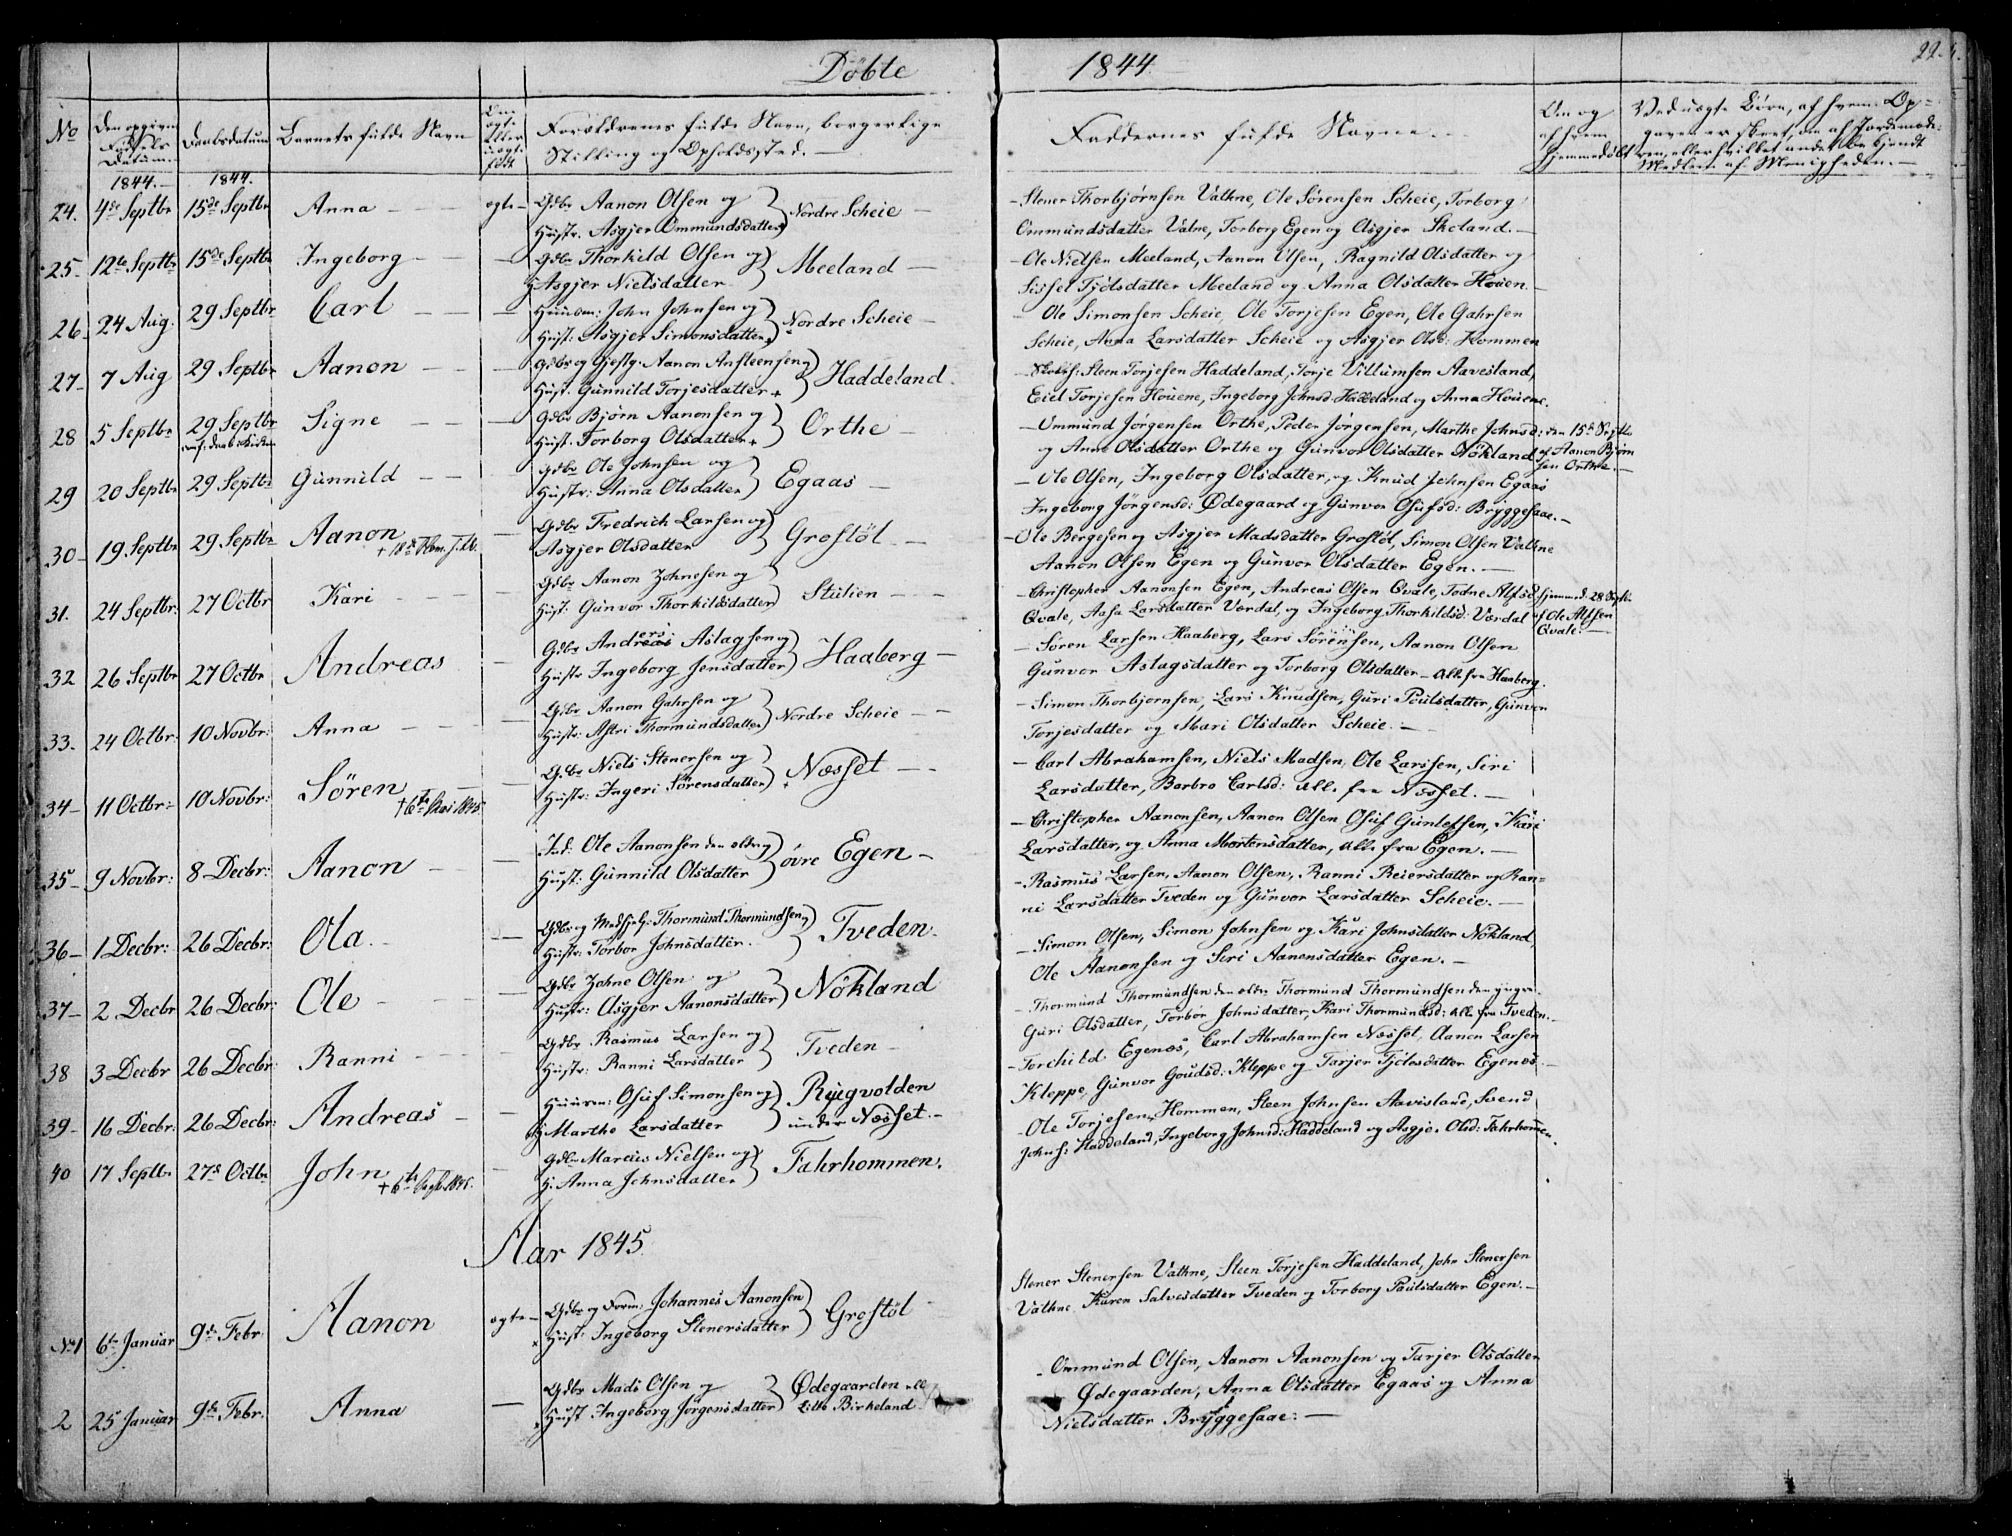 Döbte
1844
22.
No
Den opgivne Fødsels Datum.
Daabsdatum
Barnets fulde Navn
Om ægte eller uægte født
Forældrenes fulde Navn, borgerlige Stilling og Opholdssted.
Faddernes fulde Navne.
Om og af hvem hjemmedøbt
Ved uægte Børn, af hvem Opgaven er skeet, om af Jordemoderen, eller hvilket andet bekjendt Medlem af Menigheden.
1844. 1844.
24. 4de Septbr 15de Septbr Anna ægte Gdbr Aanon Olsen og
Hustr. Asgjer Ommundsdatter Nordre Scheie
Stener Thorbjørnsen Vathne, Ole Sörensen Scheie, Torborg
Ommundsdatter Vatne, Torborg Egen og Asgjer Skoland.
25 12te Septbr 15de Septbr Ingeborg Gdbr Thorkild Olsen og
H. Asgjer Nielsdatter Meeland
Ole Nielsen Meeland, Aanon Olsen, Ragnild Olsdatter og
Sissel Tjölsdatter Meeland og Anna Olsdatter Houen
26 24 Aug. 29 Septbr Carl Huusm: John Johnsen og
Hust: Asgjer Simonsdatter Nordre Scheie
Ole Simonsen Scheie, Ole Torjesen Egen, Ole Gahrsen
Scheie, Anna Larsdatter Scheie og Asgjer Olsd: Hommen
27 7 Aug 29 Septbr Aanon Gdbr og Gjestg. Aanon Ansteensen og
Hust. Gunnild Torjesdatter Haddeland
Steen Torjesen Haddeland, Torje Villumsen Aavesland,
Eiel Torjesen Houene, Ingeborg Johnsd Haddeland og Anna Houene.
28 5 Septbr 29 Septbr Signe Gdbr Björn Aanonsen og
Hust: Torborg Olsdatter Orthe
Ommund Jörgensen Orthe, Peder Jörgensen, Marthe Johnsd:
og Anne Olsdatter Orthe og Gunvor Olsdatter Nökland
den 15de Septbr
af Aanon Björn
sen Orthe.
29 20 Septbr 29 Septbr Gunnild Gdbr Ole Johnsen og
Hustr: Anna Olsdatter Egaas
Ole Olsen, Ingeborg Olsdatter, og Knud Johnsen Egaas
Ingeborg Jörgensd: Ødegaard og Gunvor Osufsd: Bryggesaae.
30 19 Septbr 29 Septbr Aanon Gdbr Fredrich Larsen og
Asgjer Olsdatter Grostöl
Ole Bergesen og Asgjer Madsdatter Grostöl, Simon Olsen Vathne
Aanon Olsen Egen og Gunvor Olsdatter Egen.
31. 24 Septbr: 27 Octbr Kari Gdbr Aanon Zohnesen og
Hust: Gunvor Thorkildsdatter Stulien
Christopher Aanonsen Egen, Andreas Olsen Qvale, Todne Alfsd:
Qvale, Aasa Larsdatter Værdal, og Ingeborg Thorkildsd: Værdal
hjemmed. 28 Septbr
af Ole Alfsen
Qvale.
32 26 Septbr 27 Octbr Andreas Gdbr Anders Aslagsen og
Hustr Ingeborg Jensdatter Haaberg
Sören Larsen Haaberg, Lars Sörensen, Aanon Olsen
Gunvor Aslagsdatter og Torborg Olsdatter - alle fra Haaberg.
33. 24 Octbr: 10 Novbr: Anna Gdbr Aanon Gahrsen og
Hustr: Astri Thormundsdatter Nordre Scheie
Simon Thorbjornsen, Lars Knudsen, Guri Poulsdatter, Gunvor
Torjesdatter og Mari Olsdatter Scheie.
34 11 Octbr: 10 Novbr: Sören Gdbr Niels Stenersen og
Hustr: Ingeri Sörensdatter Næsset
Carl Abrahamsen, Niels Madsen, Ole Larssen, Siri
Larsdatter, Barbro Carlsd: alle fra Næsset.
35 9 Novbr: 8 Decbr: Aanon Ind: Ole Aanonsen den eldre og
Hust: Gunnild Olsdatter øvre Egen
Christopher Aanonsen, Aanon Olsen Osuf Gunlefsen, Kari
Larsdatter, og Anna Mortensdatter, alle fra Egen.
36 1 Decbr: 26 Decbr: Ola. Gdbr og Medhjelp: Thormund Thormundsen og
Hustr: Torbor Johnsdatter. Tveden
Rasmus Larsen, Aanon Olsen, Ranni Reiersdatter og Ran=
ni Larsdatter Tveden og Gunvor Larsdatter Scheie.
37 2 Decbr 26 Decbr: Ole Gdbr Zohne Olsen og
Hustr: Asgjer Aanonsdatter Nökland
Simon Olsen, Simon Johnsen og Kari Johnsdatter Nökland
Ole Aanonsen og Siri Aanonsdatter Egen.
38 3 Decbr 26 Decbr: Ranni Gdbr Rasmus Larsen og
Hustr: Ranni Larsdatter Tveden
Thormund Thormundsen den eldre Thormund Thormundsen den yngre
Guri Olsdatter, Torbor Johnsdatter, Kari Thormundsd: alle fra Tveden.
39 16 Decbr: 26 Decbr: Andreas Huusm: Osuf Simonsen og
H. Marthe Larsdatter Rugvolden under Næsset.
Torchild Egenæs, Carl Abrahamsen Næsset, Aanon Larsen
Kleppe, Gunvor Goudsd: Kleppe og Tarjer Tjölesdatter Egenæs.
40 17 Septbr 27de Octbr John Gdbr Marcus Nielsen og
H. Anna Johnsdatter Fahrhommen.
Ole Torjesen Hommen, Steen Johnsen Aavisland, Svend
Johns: Haddeland, Ingeborg Johnsd: Haddeland og Asgje. Olsd: Fahrhommen.
Aar 1845.
No 1 6te Januar 9de Febr: Aanon ægte Gdbr og Form: Johannes Aanonsen
Hust: Ingeborg Stenersdatter Grostöl
Stener Stenersen Vathne, Steen Torjesen Haddeland, John Stenersen
Vathne, Karen Salvesdatter Tveden og Torborg Paulsdatter Egen.
2 25 Januar 9de Febr. Anna Gdbr Mads Olsen og
Hust Ingeborg Jörgensdatter Ødegaarden ell: Litle Birkeland
Ommund Olsen, Aanon Aanonsen og Tarjer Olsdatter
Ødegaarden, Anna Olsdatter Egaas og Anna
Nielsdatter Bryggesaae: